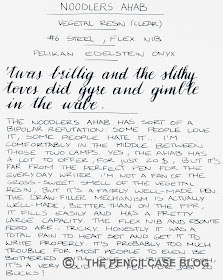 NOODLERS AHAB
VEGETAL RESIN (CLEAR)
#6 STEEL, FLEX NIB
PELIKAN EDELSTEIN ONYX
'twas brillig and the slithy
toves did gyre and gimble
in the wabe.
THE NOODLERS AHAB HAS SORT OF A
BIPOLAR REPUTATION: SOME PEOPLE LOVE
IT, SOME PEOPLE HATE IT. I'M
COMFORTABLY IN THE MIDDLE BETWEEN
THOSE TWO CAMPS. YES, THE AHAB HAS
A LOT TO OFFER FOR JUST 20$, BUT IT'S
FAR FROM THE PERFECT PEN FOR THE
EVERYDAY WRITER. I'M NOT A FAN OF THE
GROSS-SWEET SMELL OF THE VEGETAL
RESIN, BUT IT'S A FAIRLY WELL-MADE PEN.
THE CRAN-FILLER MECHANISM IS ACTUALLY
WELL-MADE, BETTER THAN ON THE FPR,
IT FILLS EASILY AND HAS A PRETTY
LARGE CAPACITY. THE FLEX NIB AND EBONITE
FEED ARE... TRICKY. HONESTLY IT WAS A
TOTAL PAIN TO HEAT SET AND GET IT TO
WRITE PROPERLY. IT'S PROBABLY TOO MUCH
TROUBLE FOR MOST PEOPLE TO BE
BOTHERED.
IT'S A VERY
BUCKS!
© THE PENCILCASE BLOG